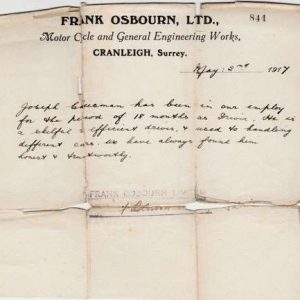 FRANK OSBOURN, LTD., 844
Motor Cycle and General Engineering Works,
CRANLEIGH, Surrey.
May 2nd 1917
Joseph has been in our employ
for the period of 18 months as Driver. He is
a skilful & efficient driver, & used to handling
different cars. We have always found him
honest & trustworthy.
FRANK OSBOURN LIMITED